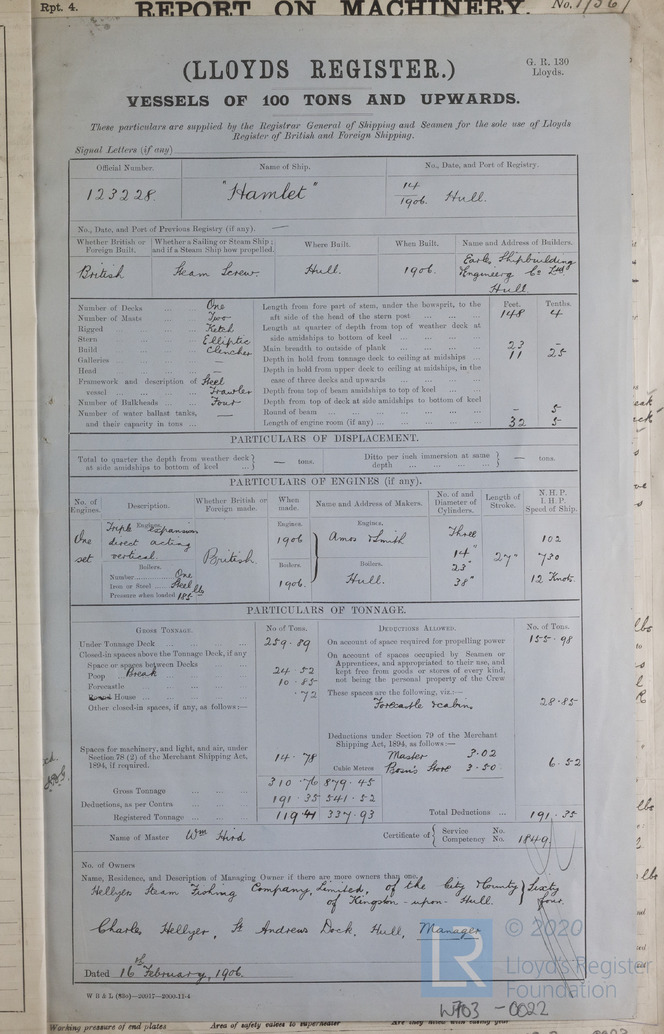 Rpt. 4.
REPORT ON MACHINERY.
No.
(LLOYDS REGISTER.)
G. R. 130
Lloyds.
VESSELS OF 100 TONS AND UPWARDS.
These particulars are supplied by the Registrar General of Shipping and Seamen for the sole use of Lloyds
Register of British and Foreign Shipping.
Signal Letters (if any)
Official Number. Name of Ship. No., Date, and Port of Registry.
123228. "Hamlet" 14/1906. Hull.
No., Date, and Port of Previous Registry (if any). —
Whether British or Foreign Built. Whether a Sailing or Steam Ship; and if a Steam Ship how propelled. Where Built. When Built. Name and Address of Builders.
British Steam Screw. Hull. 1906. Earles Shipbuilding
Engineerg Co Ltd
Hull
Feet. Tenths.
Number of Decks ... One
Number of Masts ... Two
Rigged ... Ketch
Stern ... Elliptic
Build ... Clencher
Galleries ... —
Head ... —
Framework and description of Steel
vessel ... Trawler
Number of Bulkheads ... Four
Number of water ballast tanks,
and their capacity in tons ... —
Length from fore part of stem, under the bowsprit, to the
aft side of the head of the stern post ... 148 4
Length at quarter of depth from top of weather deck at
side amidships to bottom of keel ...
Main breadth to outside of plank ... 23 —
Depth in hold from tonnage deck to ceiling at midships ... 11 25
Depth in hold from upper deck to ceiling at midships, in the
case of three decks and upwards ...
Depth from top of beam amidships to top of keel ...
Depth from top of deck at side amidships to bottom of keel
Round of beam ... — 5
Length of engine room (if any) ... 32 5
PARTICULARS OF DISPLACEMENT.
Total to quarter the depth from weather deck at side amidships to bottom of keel ... — tons. Ditto per inch immersion at same depth ... — tons.
PARTICULARS OF ENGINES (if any).
No. of Engines. Description. Whether British or Foreign made. When made. Name and Address of Makers. No. of and Diameter of Cylinders. Length of Stroke. N.H.P. I.H.P. Speed of Ship.
Engines. Engines. Engines.
One set Triple Expansion direct acting vertical. British. 1906 Amos & Smith Three 14" 23" 38" 27" 102 730 12 Knots.
Boilers. Boilers. Boilers.
Number... One
Iron or Steel... Steel
Pressure when loaded 185 lbs
1906. Hull.
PARTICULARS OF TONNAGE.
GROSS TONNAGE. No of Tons.
Under Tonnage Deck ... 259.89
Closed-in spaces above the Tonnage Deck, if any
Space or spaces between Decks ...
Poop Break 24.52
Forecastle ... 10.85
Round House ... .72
Other closed-in spaces, if any, as follows:—
Spaces for machinery, and light, and air, under
Section 78 (2) of the Merchant Shipping Act,
1894, if required. 14.78
Cubic Metres
Gross Tonnage ... 310.76 879.45
Deductions, as per Contra ... 191.35 541.52
Registered Tonnage ... 119.41 337.93
DEDUCTIONS ALLOWED. No. of Tons.
On account of space required for propelling power 155.98
On account of spaces occupied by Seamen or
Apprentices, and appropriated to their use, and
kept free from goods or stores of every kind,
not being the personal property of the Crew
These spaces are the following, viz.:—
Forecastle & cabin 28.85
Deductions under Section 79 of the Merchant
Shipping Act, 1894, as follows:—
Master 3.02
Bosn's Store 3.50 6.52
Total Deductions ... 191.35
Name of Master Wm Hird Certificate of Service No. Competency No. 1849.
No. of Owners
Name, Residence, and Description of Managing Owner if there are more owners than one.
Hellyers Steam Fishing Company, Limited, of the City & County
of Kingston-upon-Hull. Sixty four.
Charles Hellyer, St Andrews Dock, Hull, Manager
Dated 16th February, 1906.
© 2020
Lloyd's Register
Foundation
LR
W703-0022
Working pressure of end plates Area of safety valves to superheater